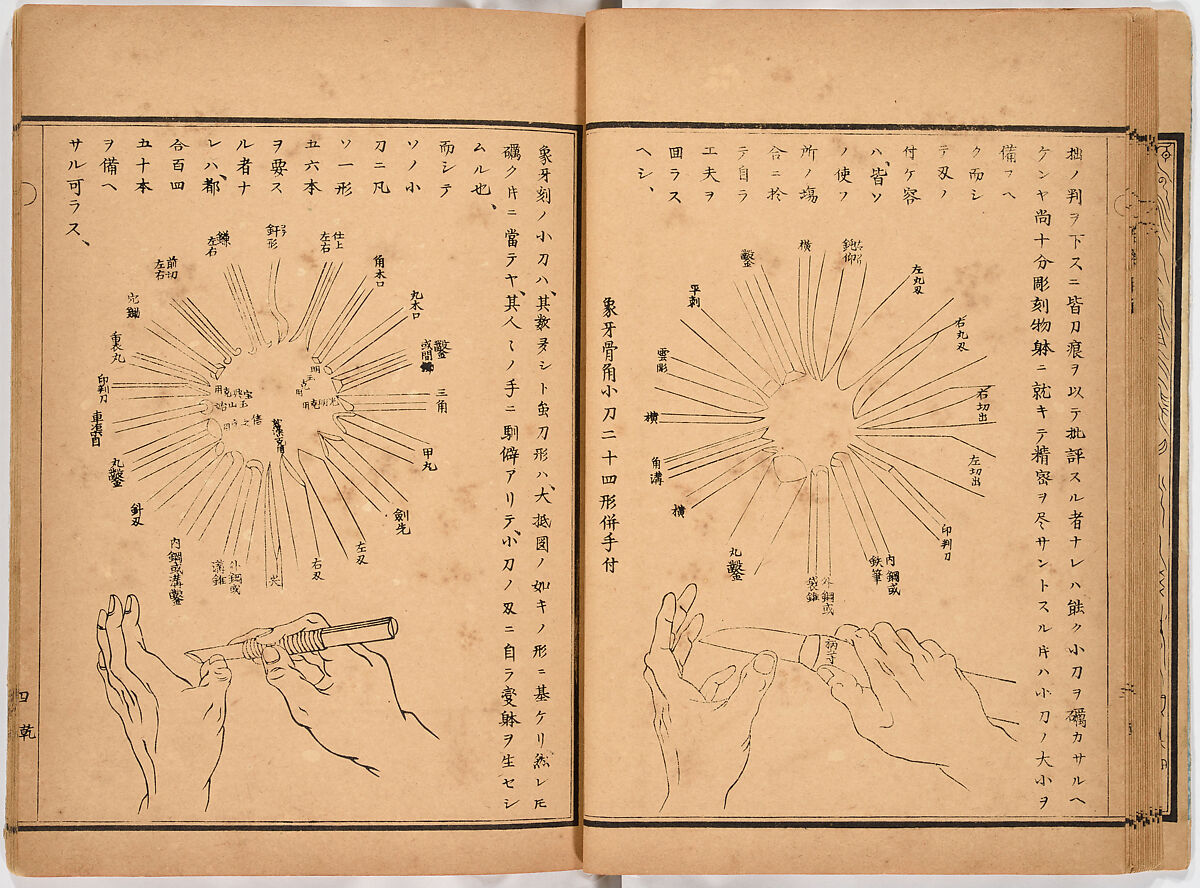 拙ノ判ヲ下スニ皆刀痕ヲ以テ批評スル者ナレハ能ク小刀ヲ礪カサルヘ
ケンヤ尚十分彫刻物躰ニ就キテ精密ヲ尽サントスル𪜈ハ小刀ノ大小ヲ
備フヘ
ク而シ
テ刃ノ
付ケ容
ハ、皆ソ
ノ使フ
所ノ塲
合ニ於
テ自ラ
工夫ヲ
囬ラス
ヘシ、
右切出
左切出
右丸刃
左丸刃
印判刀
鈍仰
内鋼或
鉄筆
横
外鋼或
錐
鑿
丸鑿
平刺
雲彫
横
角溝
横
柄二寸
象牙骨角小刀二十四形併手付
象牙刻ノ小刀ハ、其数多シト虫刀形ハ、大抵図ノ如キノ形ニ基ケリ然レ𪜈
礪ク𪜈ニ當テヤ、其人〻ノ手ニ馴僻アリテ、小刀ノ刄ニ自ラ変躰ヲ生セシ
ムル也、
而シテ
ソノ小
刀ニ凡
ソ一形
五六本
ヲ要ス
ル者ナ
レハ、都
合百四
五十本
ヲ備ヘ
サル可ラス、
鑿
或間
三角
甲丸
丸木口
角木口
剣先
仕上
左右
左刃
釪形
右刃
鎌
左右
外鋼或
溝錐
前切
左右
内鋼或溝鑿
重衣丸
印判刀
丸鑿
針刃
四
乾